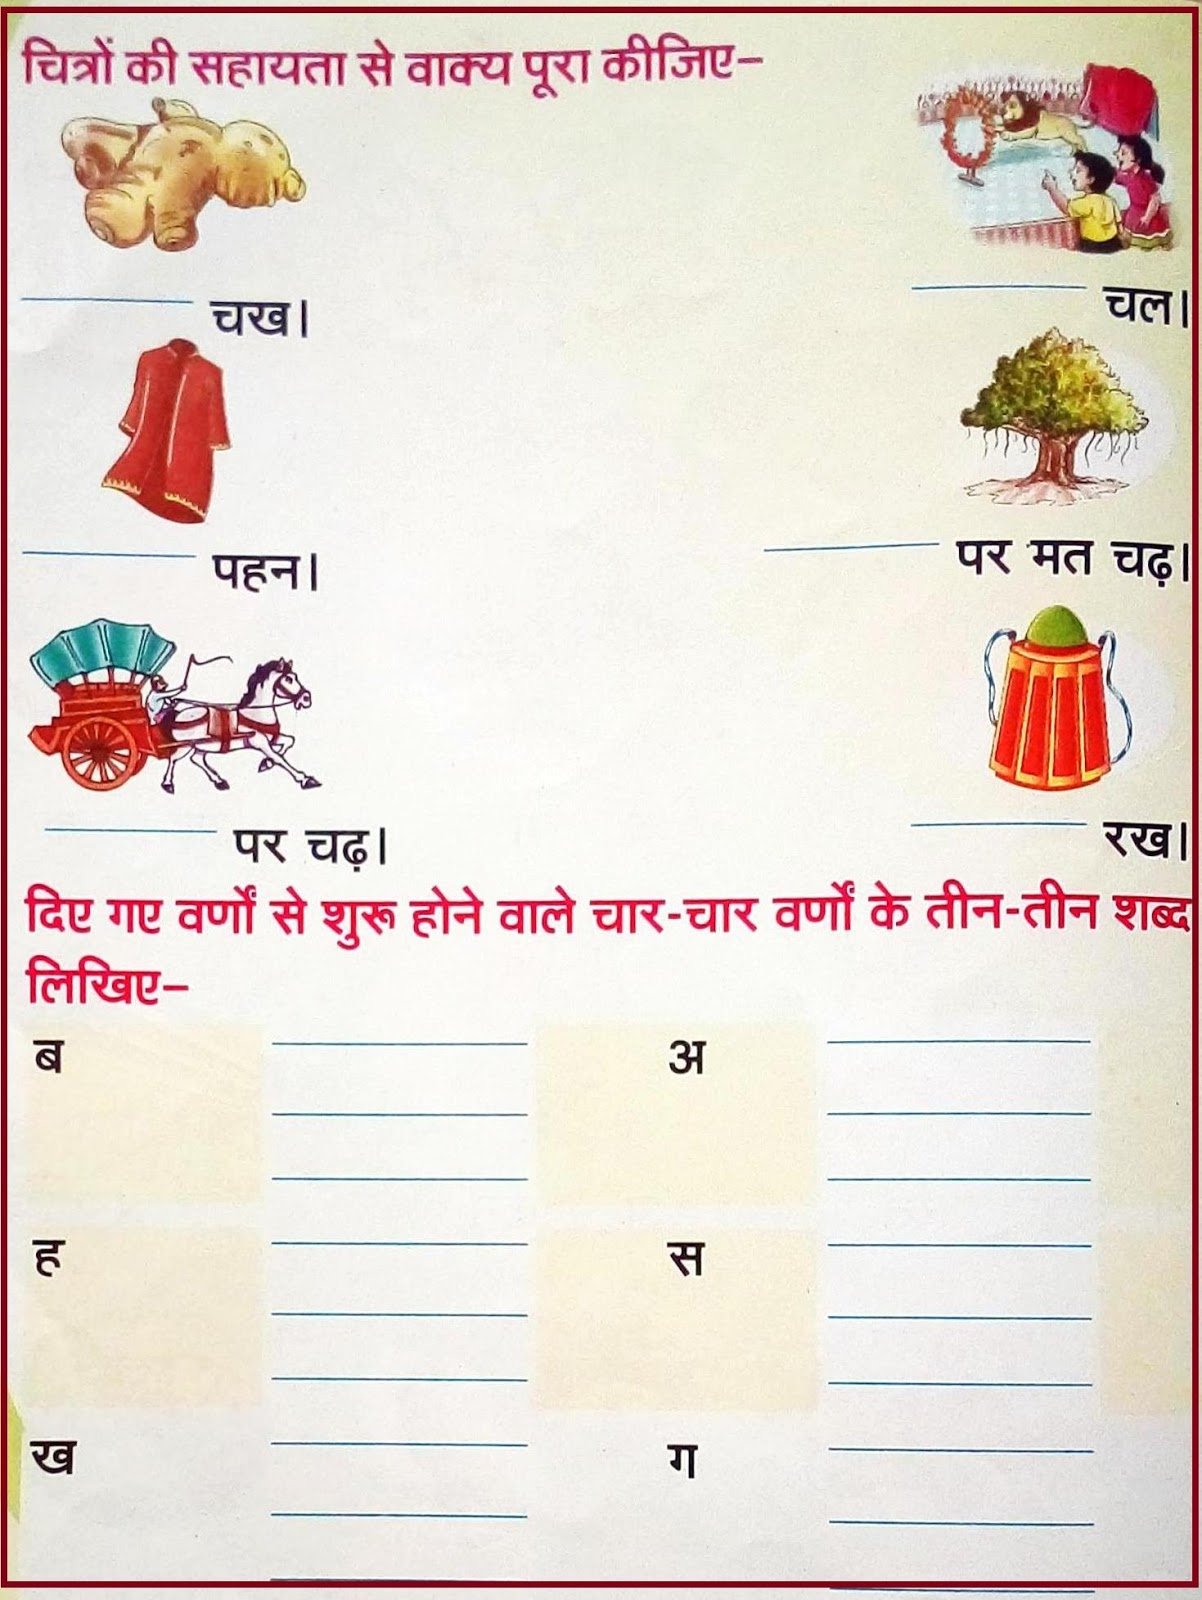 चित्रों की सहायता से वाक्य पूरा कीजिए–
चख।
चल।
पहन।
पर मत चढ़।
पर चढ़।
रख।
दिए गए वर्णों से शुरू होने वाले चार-चार वर्णों के तीन-तीन शब्द
लिखिए–
ब
अ
ह
स
ख
ग